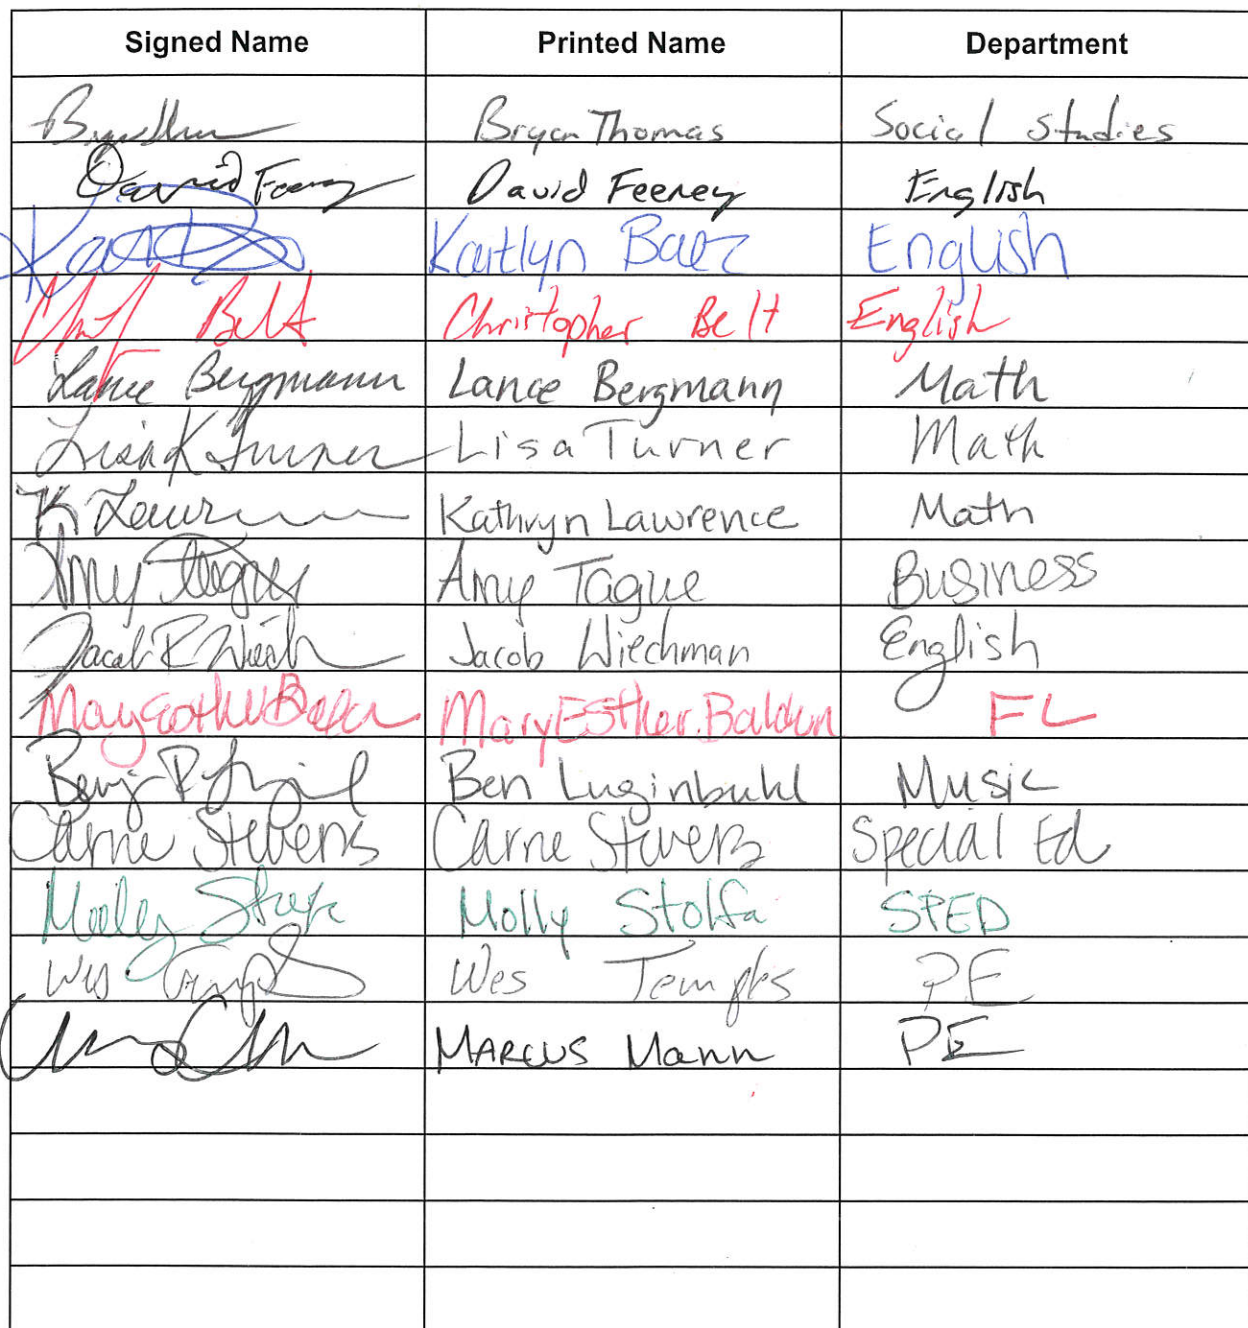 Signed Name Printed Name Department
Bryan Thomas Social Studies
David Feeney David Feeney English
Kaitlyn Baez English
Belt Christopher Belt English
Lance Bergmann Lance Bergmann Math
Lisa K Turner Lisa Turner Math
K Kathryn Lawrence Math
Amy Tague Amy Tague Business
Jacob R Jacob Wiechman English
Mary Esther Baldwin FL
Ben Luginbuhl Music
Carrie Stevens Carrie Stevens Special Ed
Molly Stolfa SPED
Wes Wes Temples PE
Marcus Mann PE